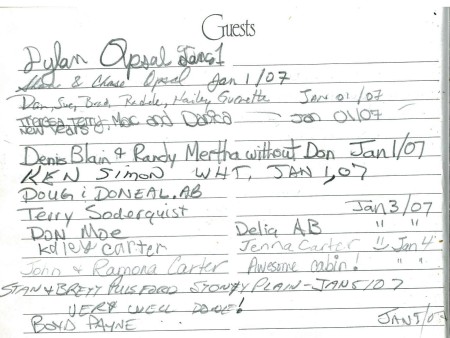 Guests
Dylan Opsal Jan 1
& Chase Opsal Jan 1/07
Dan, Sue, Brad, Hailey Jan 01/07
Theresa, Terry, Mac and Jan 01/07
New Years
Denis Blain & Randy Mertha without Don Jan 1/07
KEN SIMON WHT, JAN 1, 07
DOUG i DONEAL.AB
Terry Soderquist Jan 3/07
DON MOE Delia AB " "
Carter Jenna Carter " Jan 4
John & Ramona Carter Awesome cabin! " "
STAN & BRETT STONEY PLAIN - JAN 5/07
VERY WELL DONE!
BOYD PAYNE JAN 5/07